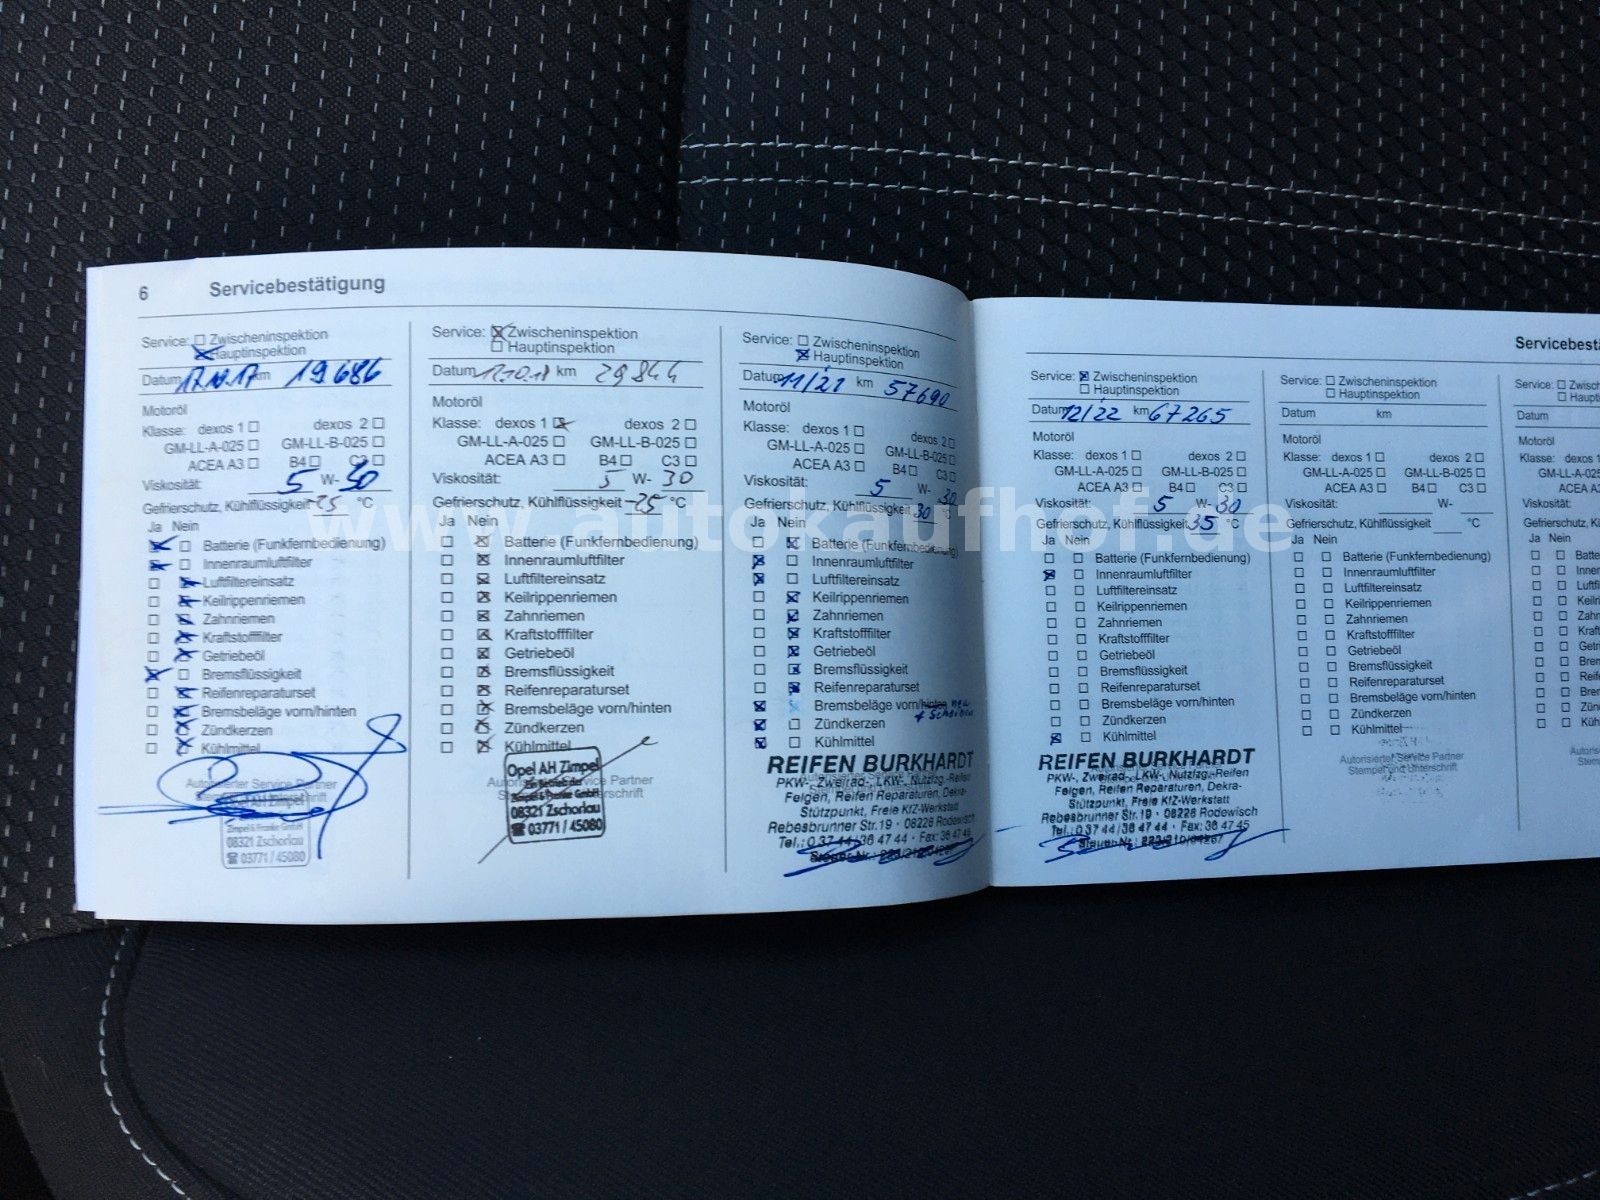 6 Servicebestätigung
Service: Zwischeninspektion
Hauptinspektion
Datum 17.10.17 km 19686
Motoröl
Klasse: dexos 1 dexos 2
GM-LL-A-025 GM-LL-B-025
ACEA A3 B4 C3
Viskosität: 5 W- 30
Gefrierschutz, Kühlflüssigkeit -25 °C
Ja Nein
Batterie (Funkfernbedienung)
Innenraumluftfilter
Luftfiltereinsatz
Keilrippenriemen
Zahnriemen
Kraftstofffilter
Getriebeöl
Bremsflüssigkeit
Reifenreparaturset
Bremsbeläge vorn/hinten
Zündkerzen
Kühlmittel
Autorisierter Service Partner
08321 Zschorlau
03771 / 45080
Service: Zwischeninspektion
Hauptinspektion
Datum 17.10.18 km 29844
Motoröl
Klasse: dexos 1 dexos 2
GM-LL-A-025 GM-LL-B-025
ACEA A3 B4 C3
Viskosität: 5 W- 30
Gefrierschutz, Kühlflüssigkeit -25 °C
Ja Nein
Batterie (Funkfernbedienung)
Innenraumluftfilter
Luftfiltereinsatz
Keilrippenriemen
Zahnriemen
Kraftstofffilter
Getriebeöl
Bremsflüssigkeit
Reifenreparaturset
Bremsbeläge vorn/hinten
Zündkerzen
Kühlmittel
Opel AH Zimpel
08321 Zschorlau
03771 / 45080
Service: Zwischeninspektion
Hauptinspektion
Datum 11/21 km 57690
Motoröl
Klasse: dexos 1 dexos 2
GM-LL-A-025 GM-LL-B-025
ACEA A3 B4 C3
Viskosität: 5 W- 30
Gefrierschutz, Kühlflüssigkeit 30 °C
Ja Nein
Batterie (Funkfernbedienung)
Innenraumluftfilter
Luftfiltereinsatz
Keilrippenriemen
Zahnriemen
Kraftstofffilter
Getriebeöl
Bremsflüssigkeit
Reifenreparaturset
Bremsbeläge vorn/hinten neu
+ Scheiben
Zündkerzen
Kühlmittel
REIFEN BURKHARDT
PKW-, Zweirad-, LKW-, Nutzfzg.-Reifen
Felgen, Reifen Reparaturen, Dekra-
Stützpunkt, Freie KfZ-Werkstatt
Rebesbrunner Str. 19 · 08228 Rodewisch
Tel.: 0 37 44 / 36 47 44 · Fax: 36 47 45
Servicebestä
Service: Zwischeninspektion
Hauptinspektion
Datum 12/22 km 67265
Motoröl
Klasse: dexos 1 dexos 2
GM-LL-A-025 GM-LL-B-025
ACEA A3 B4 C3
Viskosität: 5 W- 30
Gefrierschutz, Kühlflüssigkeit 35 °C
Ja Nein
Batterie (Funkfernbedienung)
Innenraumluftfilter
Luftfiltereinsatz
Keilrippenriemen
Zahnriemen
Kraftstofffilter
Getriebeöl
Bremsflüssigkeit
Reifenreparaturset
Bremsbeläge vorn/hinten
Zündkerzen
Kühlmittel
REIFEN BURKHARDT
PKW-, Zweirad-, LKW-, Nutzfzg.-Reifen
Felgen, Reifen Reparaturen, Dekra-
Stützpunkt, Freie KfZ-Werkstatt
Rebesbrunner Str. 19 · 08228 Rodewisch
Tel.: 0 37 44 / 36 47 44 · Fax: 36 47 45
Service: Zwischeninspektion
Hauptinspektion
Datum km
Motoröl
Klasse: dexos 1 dexos 2
GM-LL-A-025 GM-LL-B-025
ACEA A3 B4 C3
Viskosität: W-
Gefrierschutz, Kühlflüssigkeit °C
Ja Nein
Batterie (Funkfernbedienung)
Innenraumluftfilter
Luftfiltereinsatz
Keilrippenriemen
Zahnriemen
Kraftstofffilter
Getriebeöl
Bremsflüssigkeit
Reifenreparaturset
Bremsbeläge vorn/hinten
Zündkerzen
Kühlmittel
Autorisierter Service Partner
Stempel und Unterschrift
Service: Zwisch
Haupti
Datum
Motoröl
Klasse: dexos 1
GM-LL-A
ACEA A
Viskosität:
Gefrierschutz, Kü
Ja Nein
Batte
Inne
Luftfi
Keilri
Zahn
Kraft
Getri
Brem
Reif
Brem
Zün
Küh
Autoris
Stem
www.autokaufhof.de